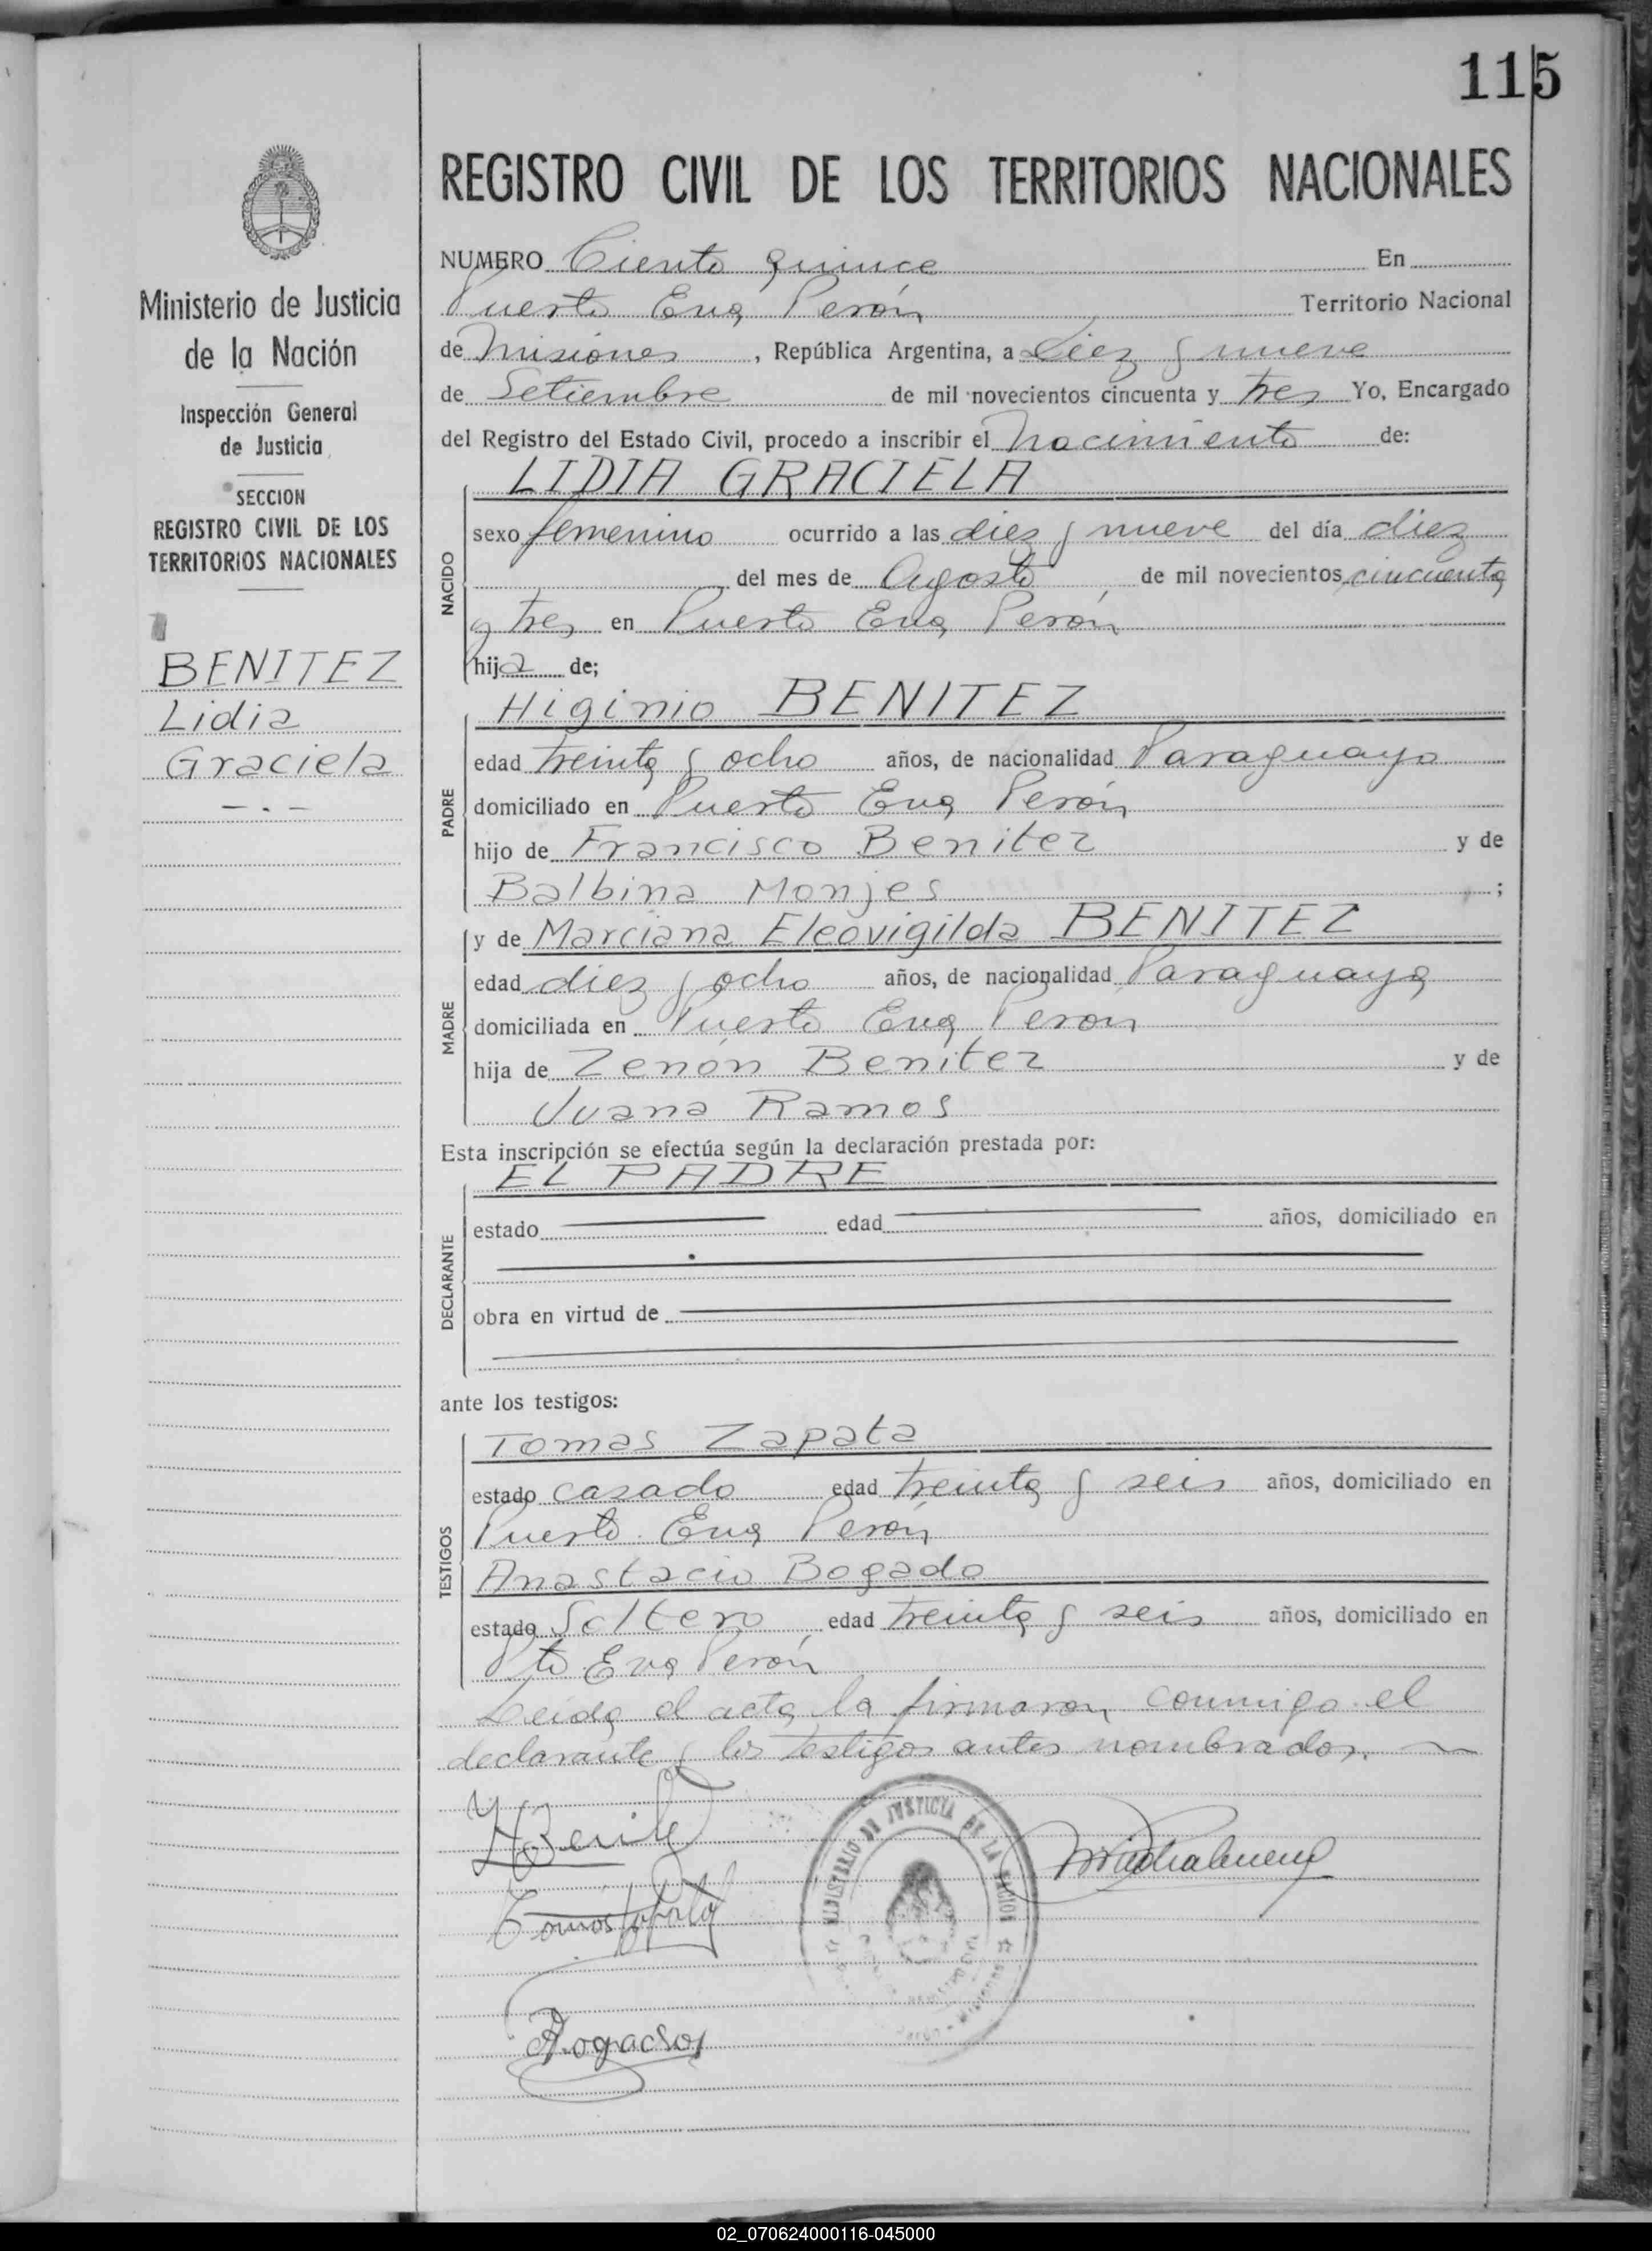 115
REGISTRO CIVIL DE LOS TERRITORIOS NACIONALES
Ministerio de Justicia
de la Nación
Inspección General
de Justicia
SECCION
REGISTRO CIVIL DE LOS
TERRITORIOS NACIONALES
BENITEZ
Lidia
Graciela
NUMERO Ciento quince En
Puerto Eva Perón Territorio Nacional
de Misiones, República Argentina, a diez y nueve
de Setiembre de mil novecientos cincuenta y tres Yo, Encargado
del Registro del Estado Civil, procedo a inscribir el nacimiento de:
NACIDO
LIDIA GRACIELA
sexo femenino ocurrido a las diez y nueve del día diez
del mes de Agosto de mil novecientos cincuenta
y tres en Puerto Eva Perón
hija de;
PADRE
Higinio BENITEZ
edad treinta y ocho años, de nacionalidad Paraguayo
domiciliado en Puerto Eva Perón
hijo de Francisco Benitez y de
Balbina Monjes ;
MADRE
y de Marciana Eleovigilda BENITEZ
edad diez y ocho años, de nacionalidad Paraguaya
domiciliada en Puerto Eva Perón
hija de Zenón Benítez y de
Juana Ramos
Esta inscripción se efectúa según la declaración prestada por:
DECLARANTE
EL PADRE
estado edad años, domiciliado en
obra en virtud de
ante los testigos:
TESTIGOS
Tomas Zapata
estado casado edad treinta y seis años, domiciliado en
Puerto Eva Perón
Anastacio Bogado
estado Soltero edad treinta y seis años, domiciliado en
Pto Eva Perón
Leida el acta, la firmaron conmigo el
declarante y los testigos antes nombrados.
HBenite
MINISTERIO DE JUSTICIA DE LA NACION
Tomas Zapata
Bogado
02_070624000116-045000